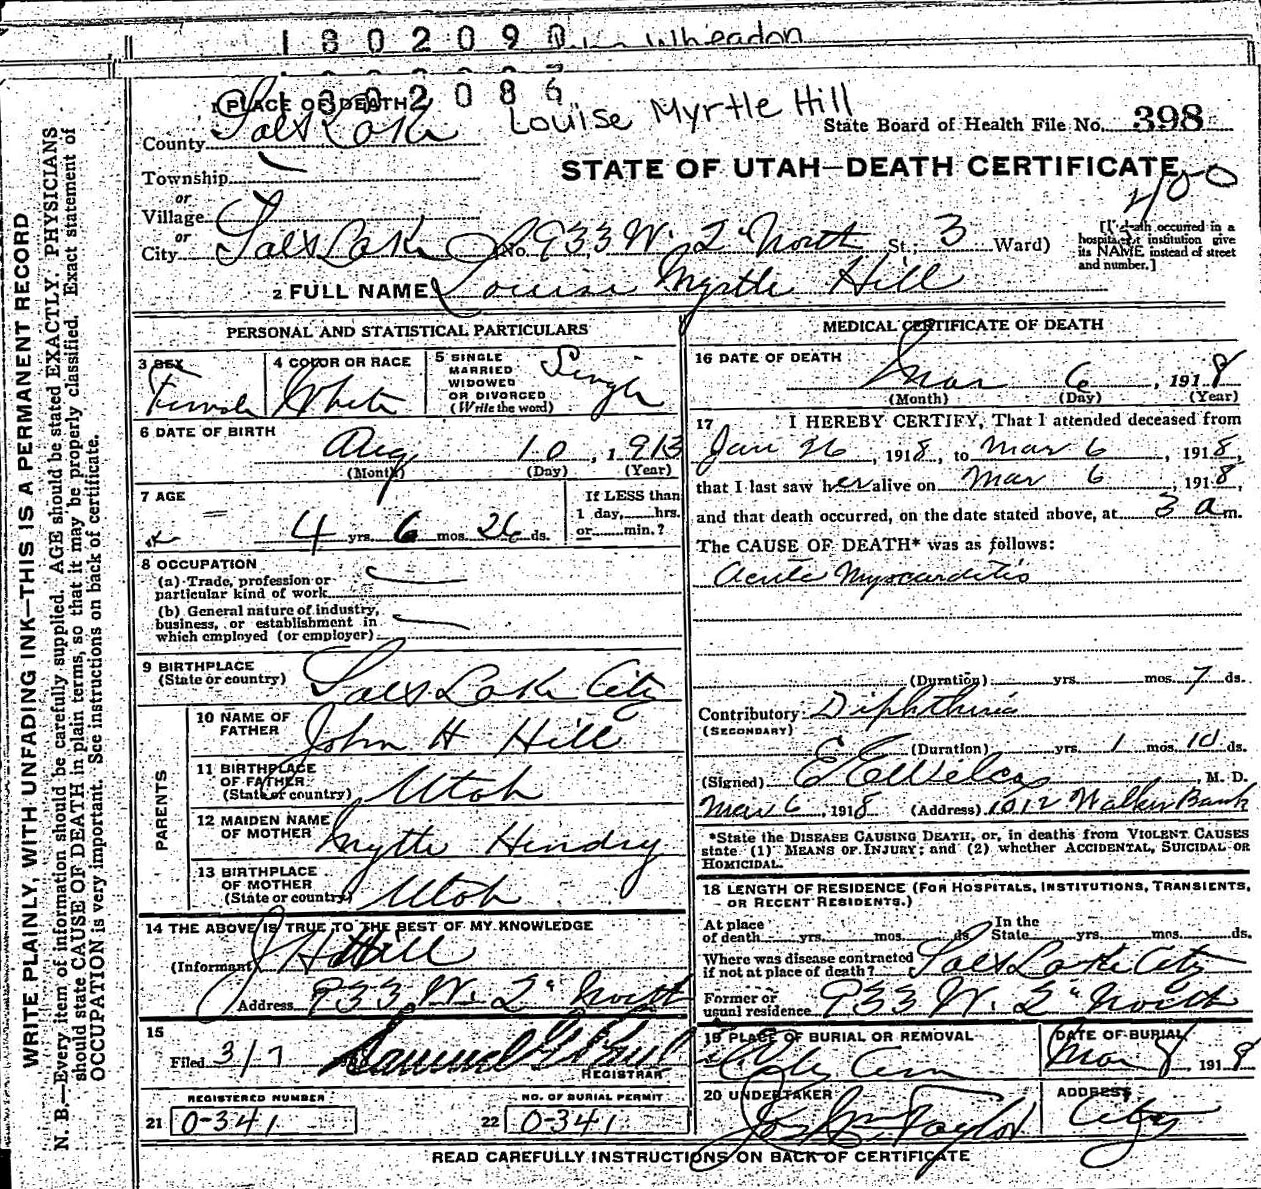 1 8 0 2 0 9 0 Wheadon
1 3 0 2 0 8 6 Louise Myrtle Hill
1 PLACE OF DEATH
State Board of Health File No. 398
County Salt Lake
STATE OF UTAH—DEATH CERTIFICATE
Township
or
Village
or
City Salt Lake No. 933 W. 2" North St; 3 Ward)
[If death occurred in a
hospital or institution give
its NAME instead of street
and number.]
2 FULL NAME Louise Myrtle Hill
PERSONAL AND STATISTICAL PARTICULARS
3 SEX Female
4 COLOR OR RACE White
5 SINGLE
MARRIED
WIDOWED
OR DIVORCED
(Write the word) Single
6 DATE OF BIRTH
Aug 10, 1913
(Month) (Day) (Year)
7 AGE
4 yrs. 6 mos. 26 ds.
If LESS than
1 day,......hrs.
or......min.?
8 OCCUPATION
(a) Trade, profession or
particular kind of work
(b) General nature of industry,
business, or establishment in
which employed (or employer)
9 BIRTHPLACE
(State or country) Salt Lake City
PARENTS
10 NAME OF
FATHER John H Hill
11 BIRTHPLACE
OF FATHER
(State or country) Utah
12 MAIDEN NAME
OF MOTHER Myrtle Hendry
13 BIRTHPLACE
OF MOTHER
(State or country) Utah
14 THE ABOVE IS TRUE TO THE BEST OF MY KNOWLEDGE
(Informant) J H Hill
Address 933 W. 2" North
15
Filed 3/7 Samuel G. Paul
REGISTRAR
REGISTERED NUMBER
21 0-341
NO. OF BURIAL PERMIT
22 0-341
MEDICAL CERTIFICATE OF DEATH
16 DATE OF DEATH
Mar 6, 1918
(Month) (Day) (Year)
17 I HEREBY CERTIFY, That I attended deceased from
Jan 26, 1918, to Mar 6, 1918,
that I last saw her alive on Mar 6, 1918,
and that death occurred, on the date stated above, at 3 a m.
The CAUSE OF DEATH* was as follows:
Acute Myocarditis
(Duration) yrs. mos. 7 ds.
Contributory Diphtheria
(SECONDARY)
(Duration) yrs. 1 mos. 10 ds.
(Signed) E E Wilcox, M. D.
Mar 6, 1918 (Address) 1012 Walker Bank
*State the DISEASE CAUSING DEATH, or, in deaths from VIOLENT CAUSES
state (1) MEANS OF INJURY; and (2) whether ACCIDENTAL, SUICIDAL OR
HOMICIDAL.
18 LENGTH OF RESIDENCE (FOR HOSPITALS, INSTITUTIONS, TRANSIENTS,
OR RECENT RESIDENTS.)
At place
of death yrs. mos. ds. In the
State yrs. mos. ds.
Where was disease contracted
if not at place of death? Salt Lake City
Former or
usual residence 933 W. 2" North
19 PLACE OF BURIAL OR REMOVAL
City Cem
DATE OF BURIAL
Mar 8 1918
20 UNDERTAKER
Jos Wm. Taylor
ADDRESS
City
READ CAREFULLY INSTRUCTIONS ON BACK OF CERTIFICATE
WRITE PLAINLY, WITH UNFADING INK—THIS IS A PERMANENT RECORD
N. B.—Every item of information should be carefully supplied. AGE should be stated EXACTLY. PHYSICIANS
should state CAUSE OF DEATH in plain terms, so that it may be properly classified. Exact statement of
OCCUPATION is very important. See instructions on back of certificate.